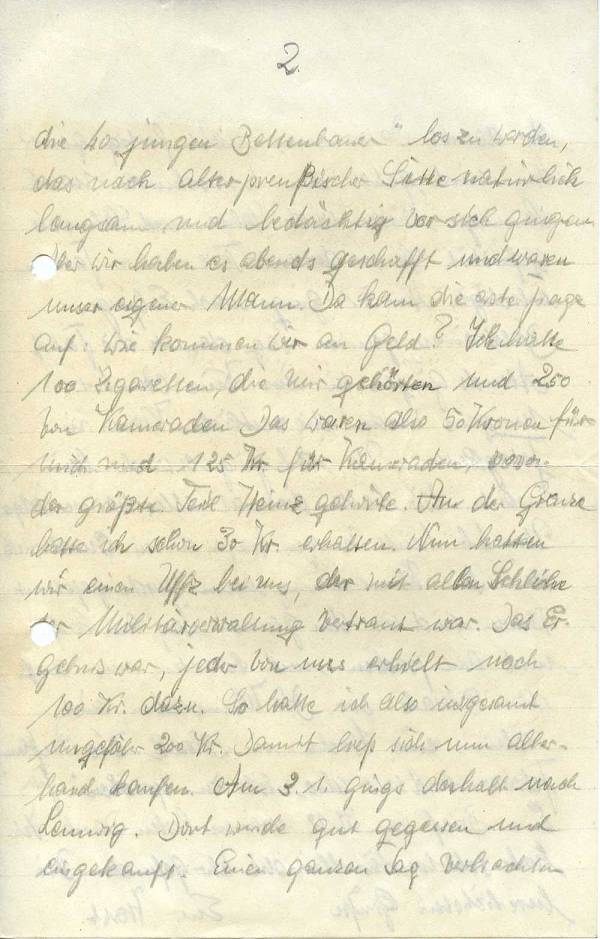 2.
die 40 jungen Bettenbauer" loszuwerden,
das nach alter preußischer Sitte natürlich
langsam und bedächtig vor sich gingen.
Aber wir haben es abends geschafft und waren
unser eigener Mann. Da kam die erste Frage
auf: wie kommen wir an Geld? Ich hatte
100 Zigaretten, die mir gehörten und 250
von Kameraden Das waren also 50 Kronen für
mich und 125 Kr. für Kameraden, wovon
der größte Teil Heinz gehörte. An der Grenze
hatte ich schon 30 Kr. erhalten. Nun hatten
wir einen Uffz bei uns, der mit allen Schliche
der Militärverwaltung vertraut war. Das Er-
gebnis war, jeder von uns erhielt noch
100 Kr. dazu. So hatte ich also insgesamt
ungefähr 200 Kr. Damit ließ sich nun aller-
hand kaufen. Am 3. 1. gings deshalb nach
Dort wurde gut gegessen und
eingekauft. Einen ganzen Tag verbrachten